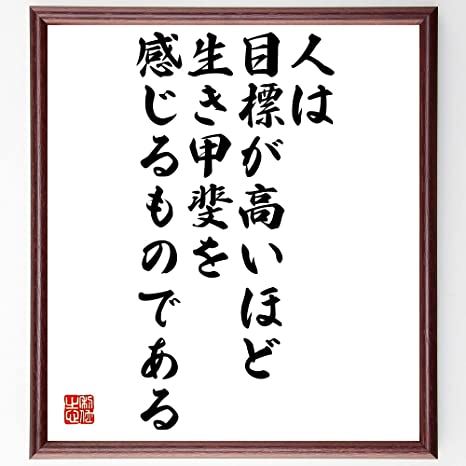 人は
目標が高いほど
生き甲斐を
感じるものである